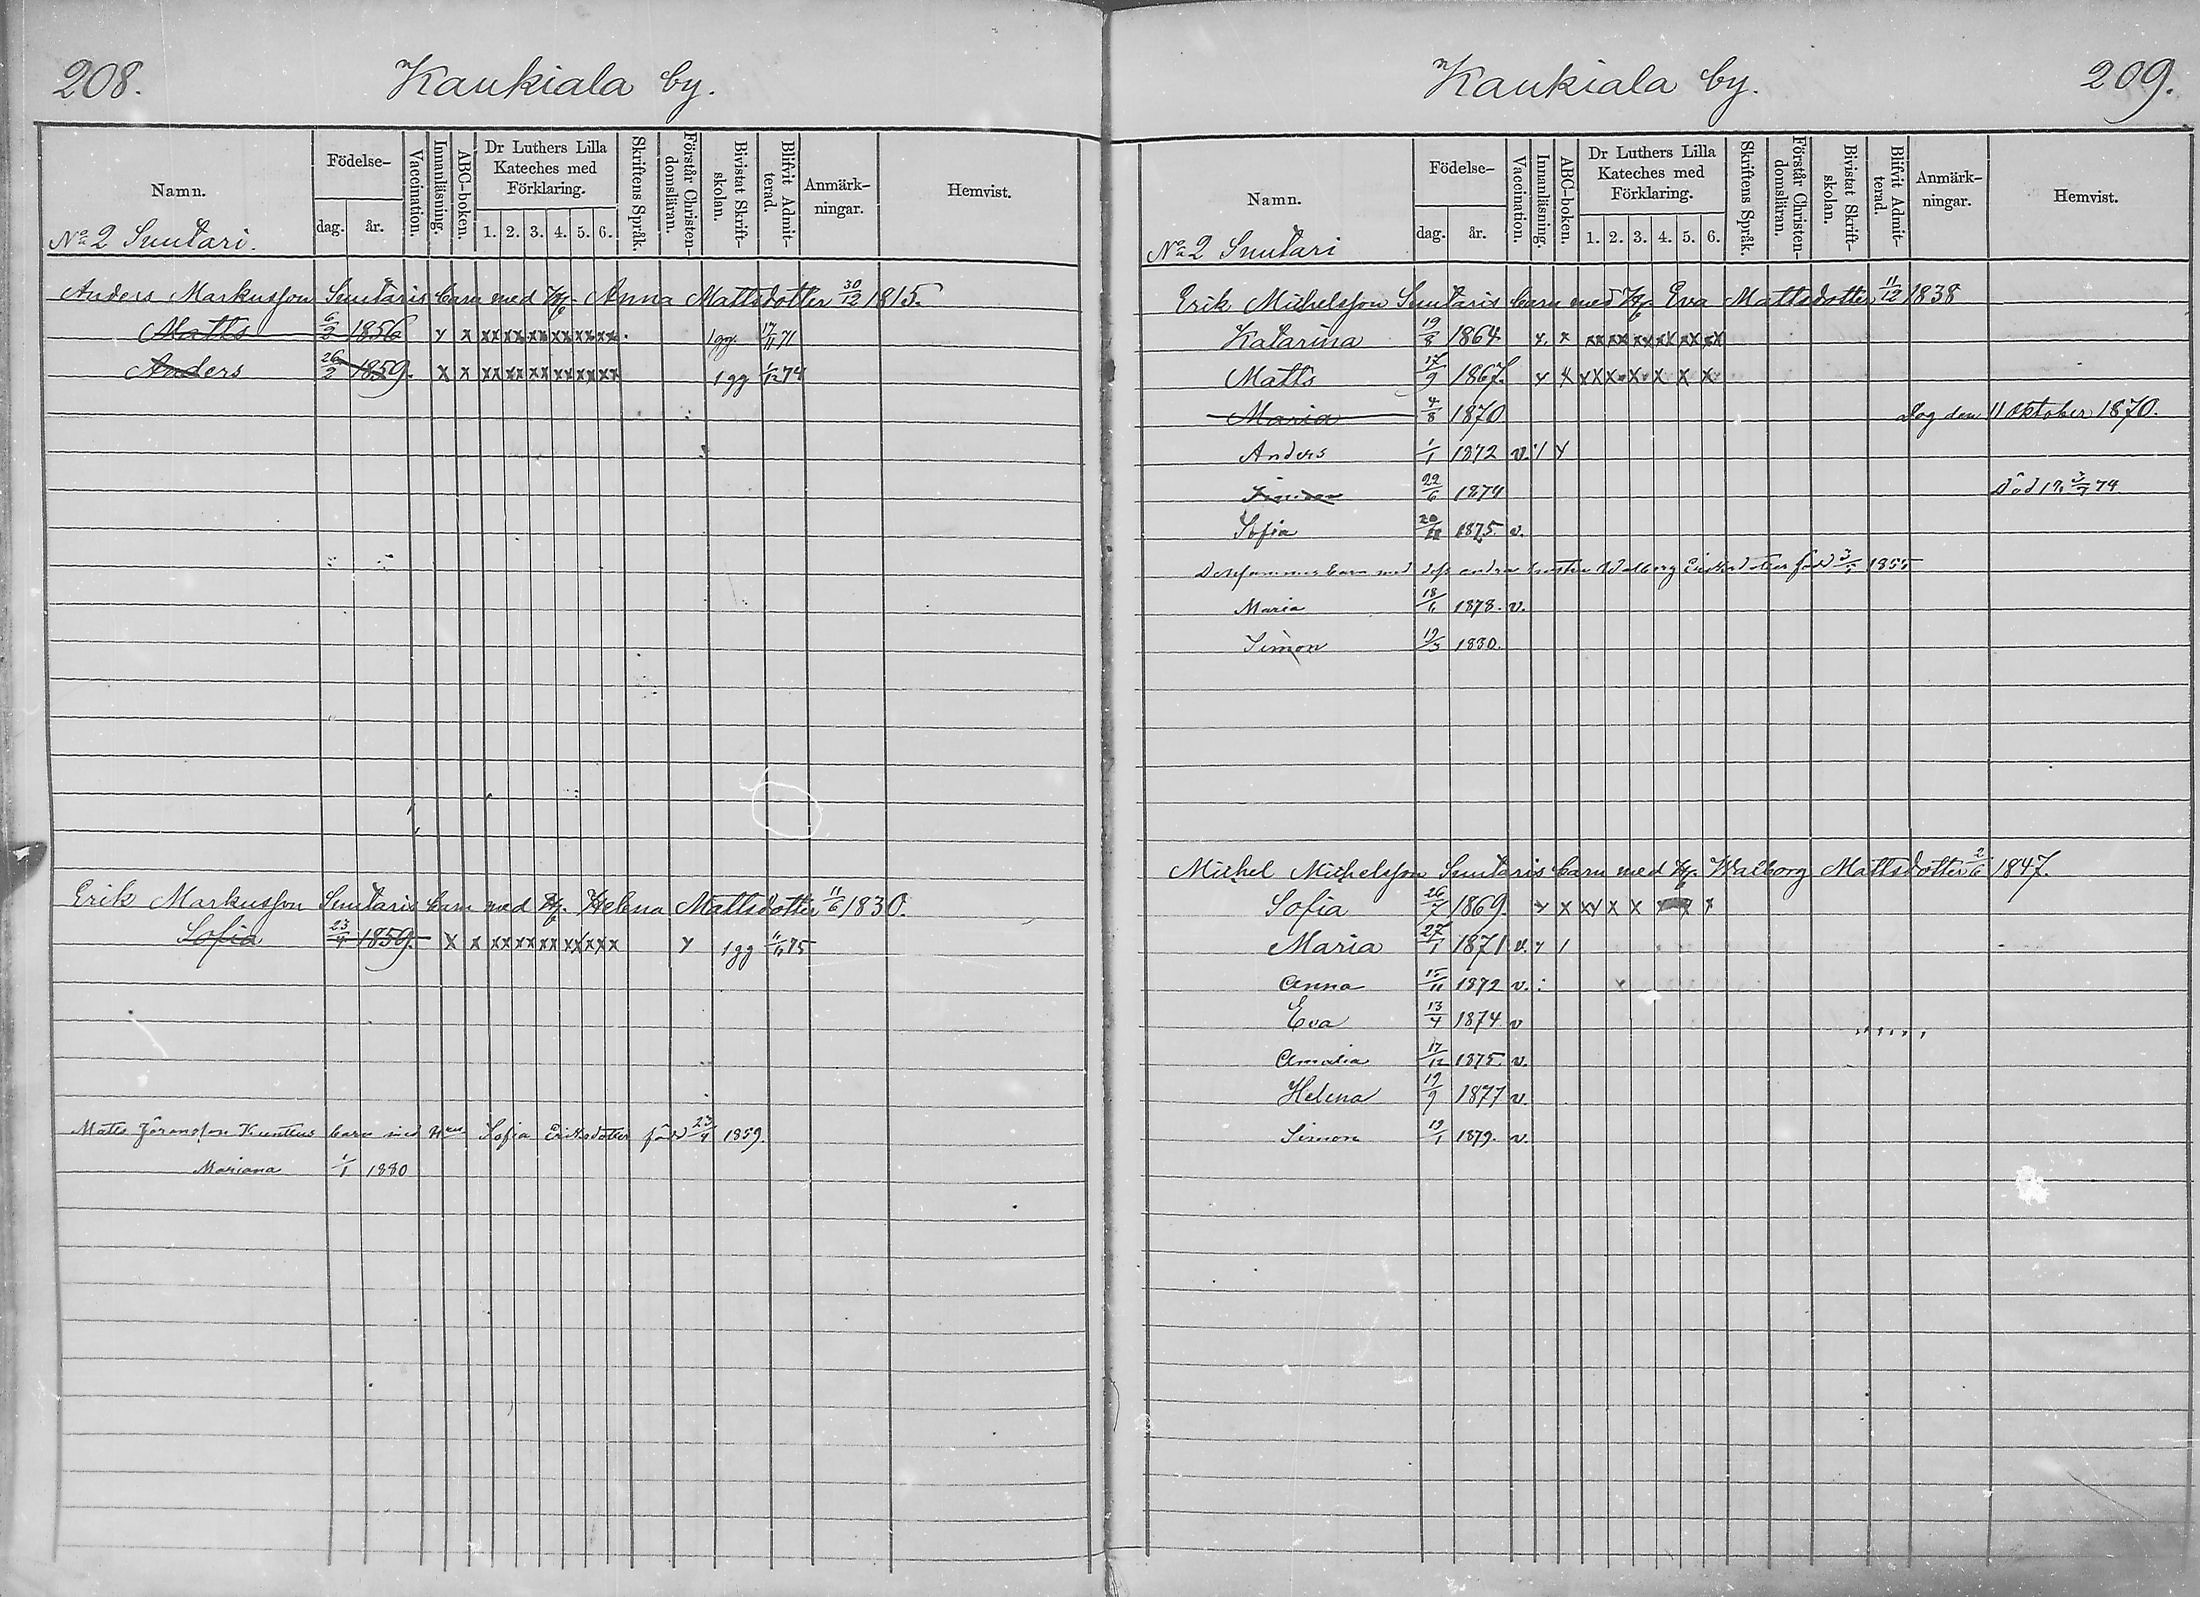 208. Kaukiala by.
Namn. Födelse- dag. år. Vaccination. Innanläsning. ABC-boken. Dr Luthers Lilla Kateches med Förklaring. 1. 2. 3. 4. 5. 6. Skriftens Språk. Förstår Christen-domsläran. Bivistat Skrift-skolan. Blifvit Admit-terad. Anmärk-ningar. Hemvist.
No 2 Suutari.
Anders Markusson Suutaris barn med H. Anna Mattsdotter 30/12 1815.
Matts 6/2 1856 x x xx xx xx xx xx xx 1 gg. 17/11 71
Anders 26/2 1859. x x xx xx xx xx xx xx 1 gg 1/12 74
Erik Markusson Suutaris barn med H. Helena Mattsdotter 11/6 1830.
Sofia 23/4 1859. x x xx xx xx xx xx x y 1 gg 11/11 75
Matts Göransson barn med Hu Sofia Eriksdotter född 23/4 1859.
Mariana 1/1 1880
Kaukiala by. 209.
Namn. Födelse- dag. år. Vaccination. Innanläsning. ABC-boken. Dr Luthers Lilla Kateches med Förklaring. 1. 2. 3. 4. 5. 6. Skriftens Språk. Förstår Christen-domsläran. Bivistat Skrift-skolan. Blifvit Admit-terad. Anmärk-ningar. Hemvist.
No 2 Suutari
Erik Michelsson Suutaris barn med H. Eva Mattsdotter 11/12 1838
Katarina 19/8 1864 x x xx xx xx xx xx xx
Matts 17/9 1867. x x xx x x x x x
Maria 4/8 1870 Dog den 11 Oktober 1870.
Anders 1/1 1872 v. 1 x
22/6 1874 Död 74
Sofia 1875. v.
barn med dess andra hustru Walborg född 1855
Maria 18/6 1878. v.
Simon 19/3 1880.
Michel Michelsson Suutaris barn med H. Walborg Mattsdotter 2/6 1847.
Sofia 26/7 1869. x x xx x x x
Maria 27/1 1871 v. x 1
Anna 15/11 1872 v.
Eva 13/4 1874 v
Amalia 17/12 1875 v.
Helena 19/9 1877 v.
Simon 19/1 1879. v.